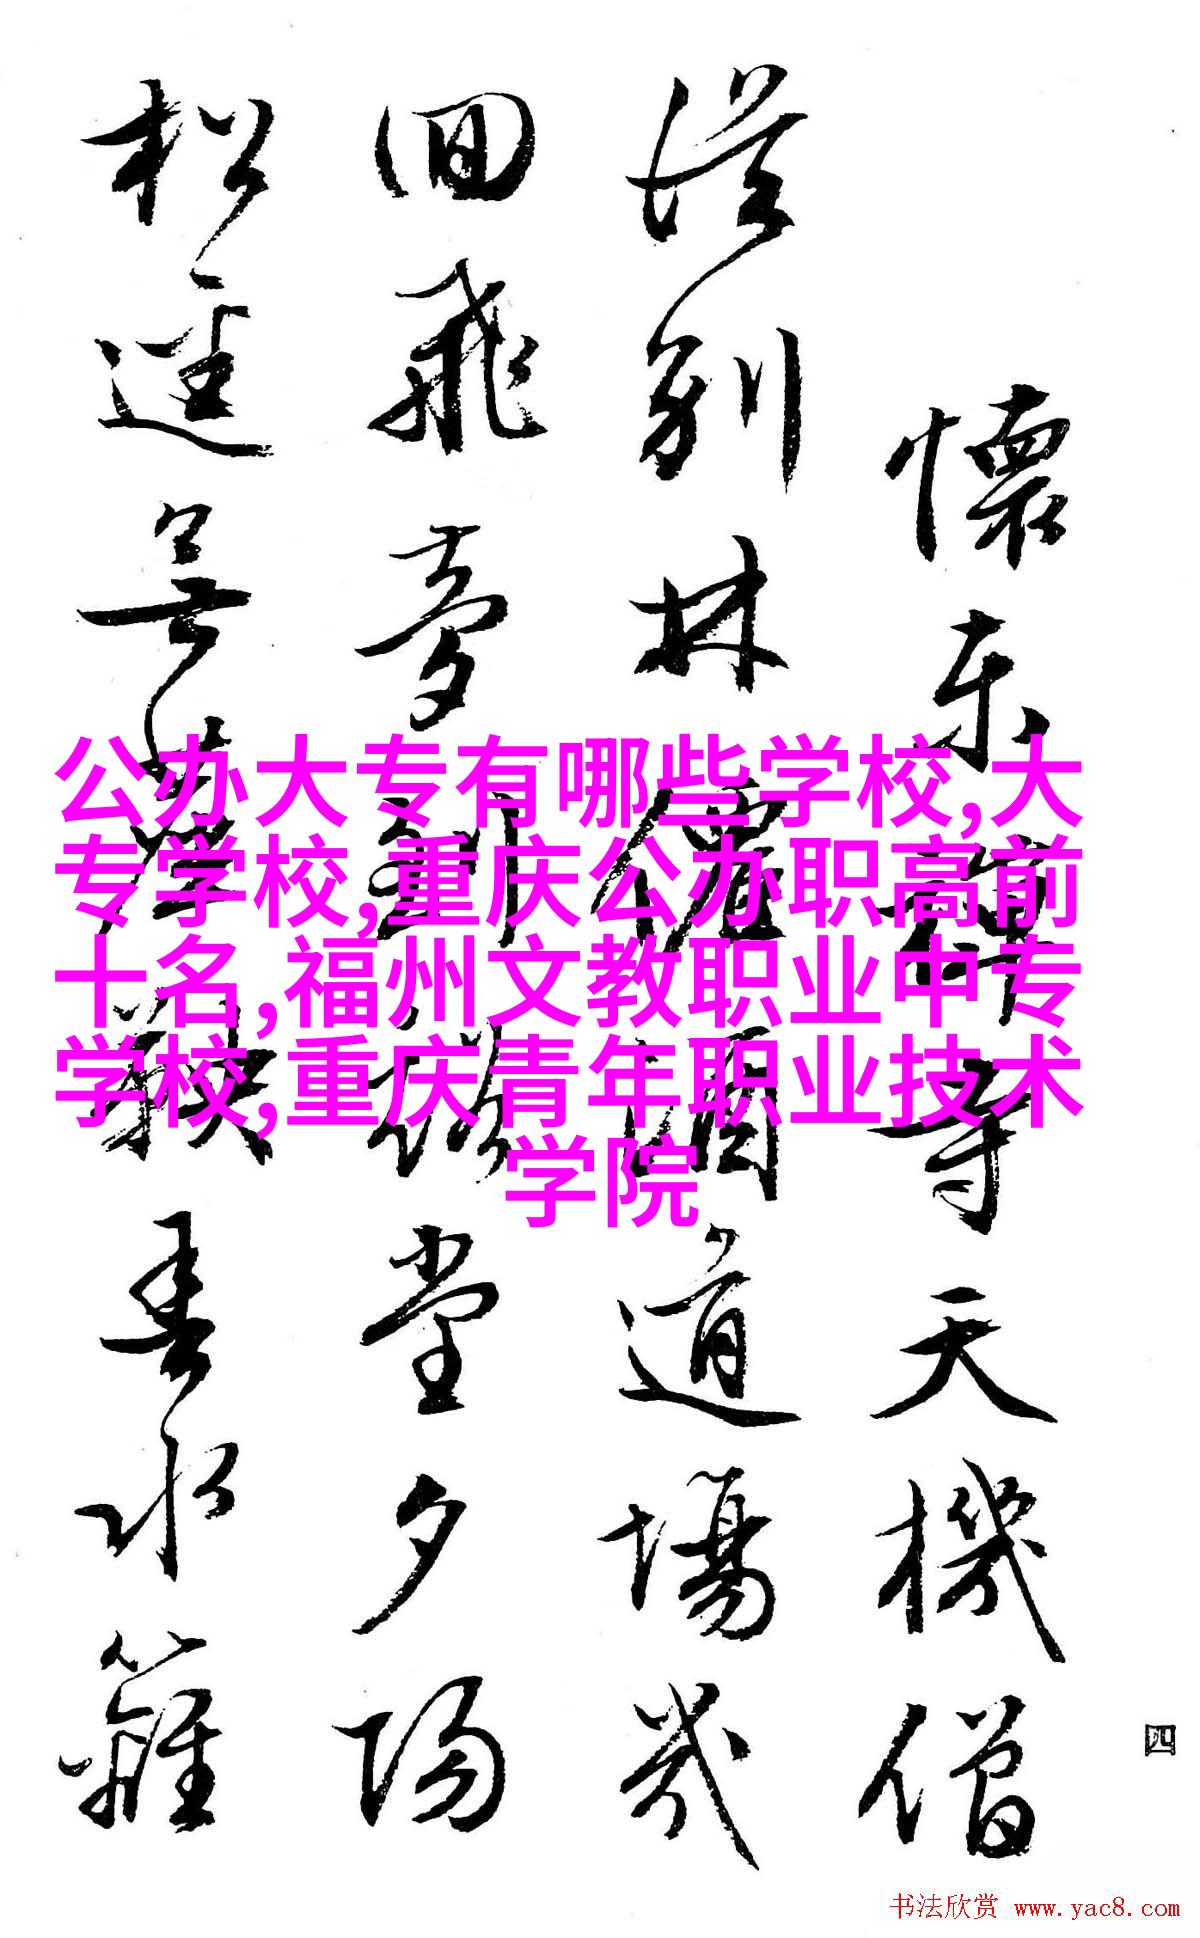 懷東禪寺天機僧
從別林僊酒道場幾
回飛夢到堂夕陽
松逕無春水籬
公办大专有哪些学校,大
专学校,重庆公办职高前
十名,福州文教职业中专
学校,重庆青年职业技术
学院
四
书法欣赏 www.yac8.com